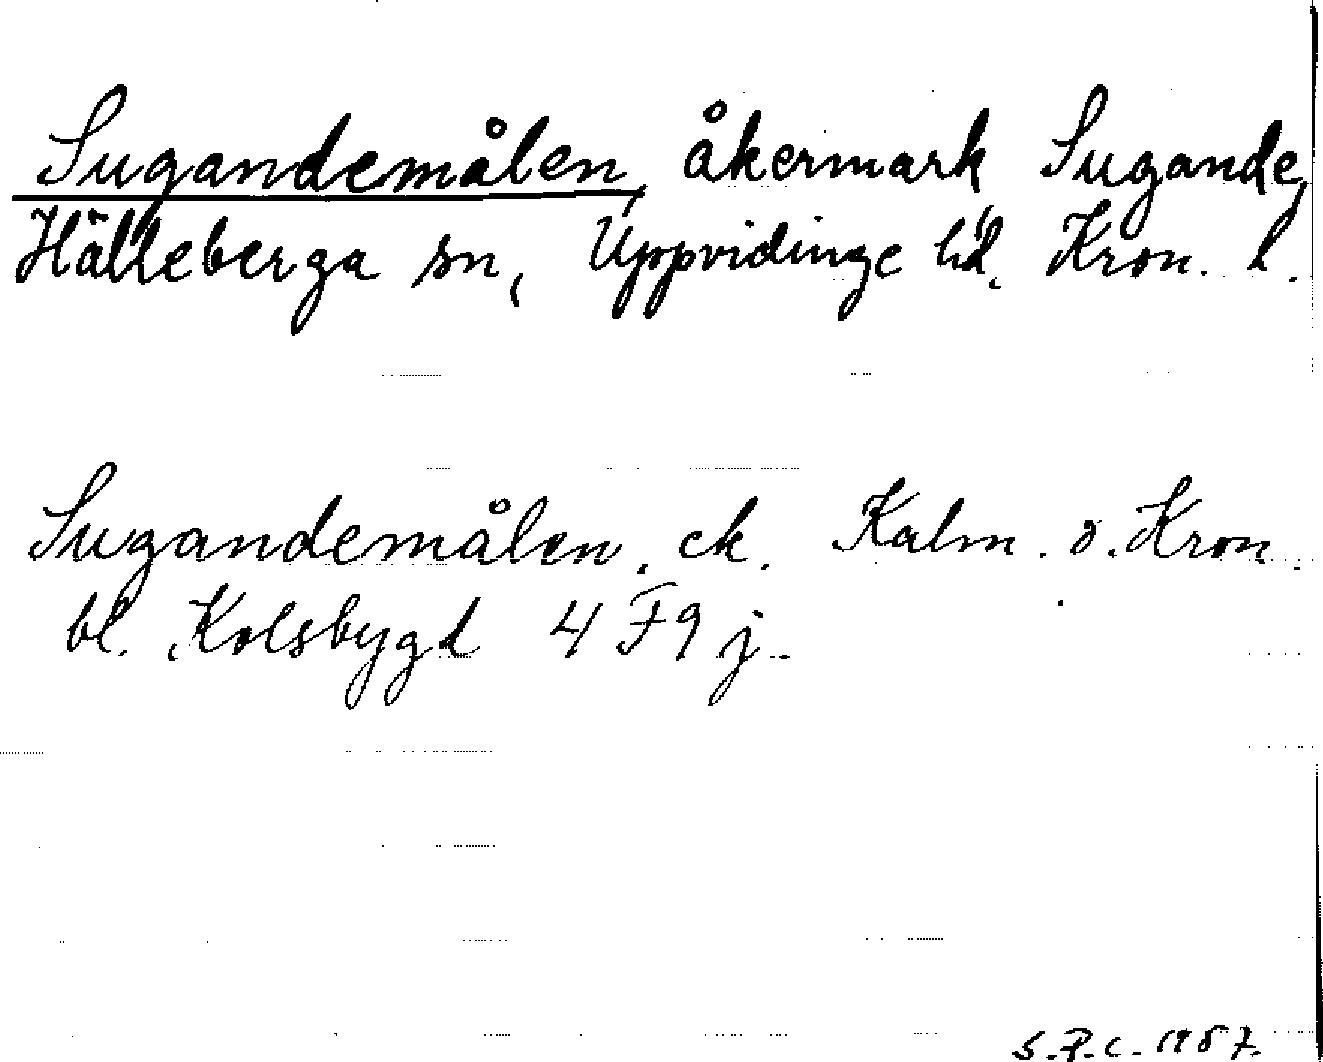 Sugandemålen, åkermark, Sugande,
Hälleberga sn, Uppvidinge hd. Kron. l.
Sugandemålen. ek. Kalm. o. Kron.
bl. Kolsbygd 4 F 9 j.
S.P.C. 1957.